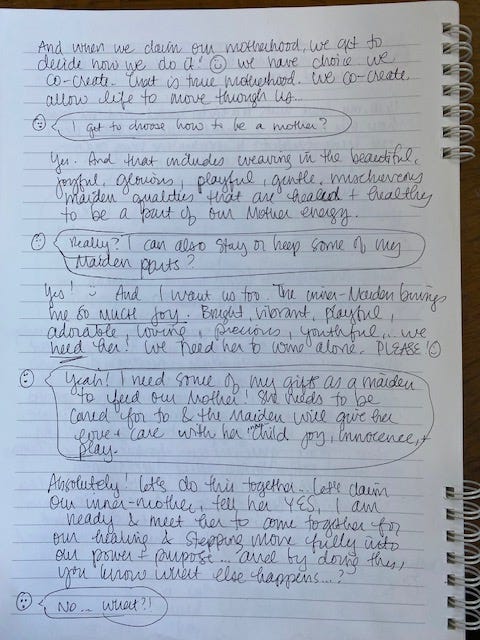 And when we claim our motherhood, we get to
decide how we do it! ☺ we have choice we
co-create. That is true motherhood. We co-create
allow life to move through us...
I get to choose how to be a mother?
Yes. And that includes weaving in the beautiful,
joyful, glorious, playful, gentle, mischievous
maiden qualities that are healed + healthy
to be a part of our Mother energy.
Really? I can also stay or keep some of my
Maiden parts?
Yes! And I want us too. The inner-Maiden brings
me so much joy. Bright, vibrant, playful,
adorable, loving, precious, youthful... we
need her! We need her to come alone. PLEASE! ☺
Yeah! I need some of my gifts as a maiden
to feed our Mother! She needs to be
cared for to & the Maiden will give her
love + care with her "child joy, innocence, +
play.
Absolutely! Let's do this together... Let's claim
our inner-mother, tell her YES, I am
ready & meet her to come together for
our healing & stepping more fully into
our power + purpost... and by doing this,
you know what else happens...?
No... What?!